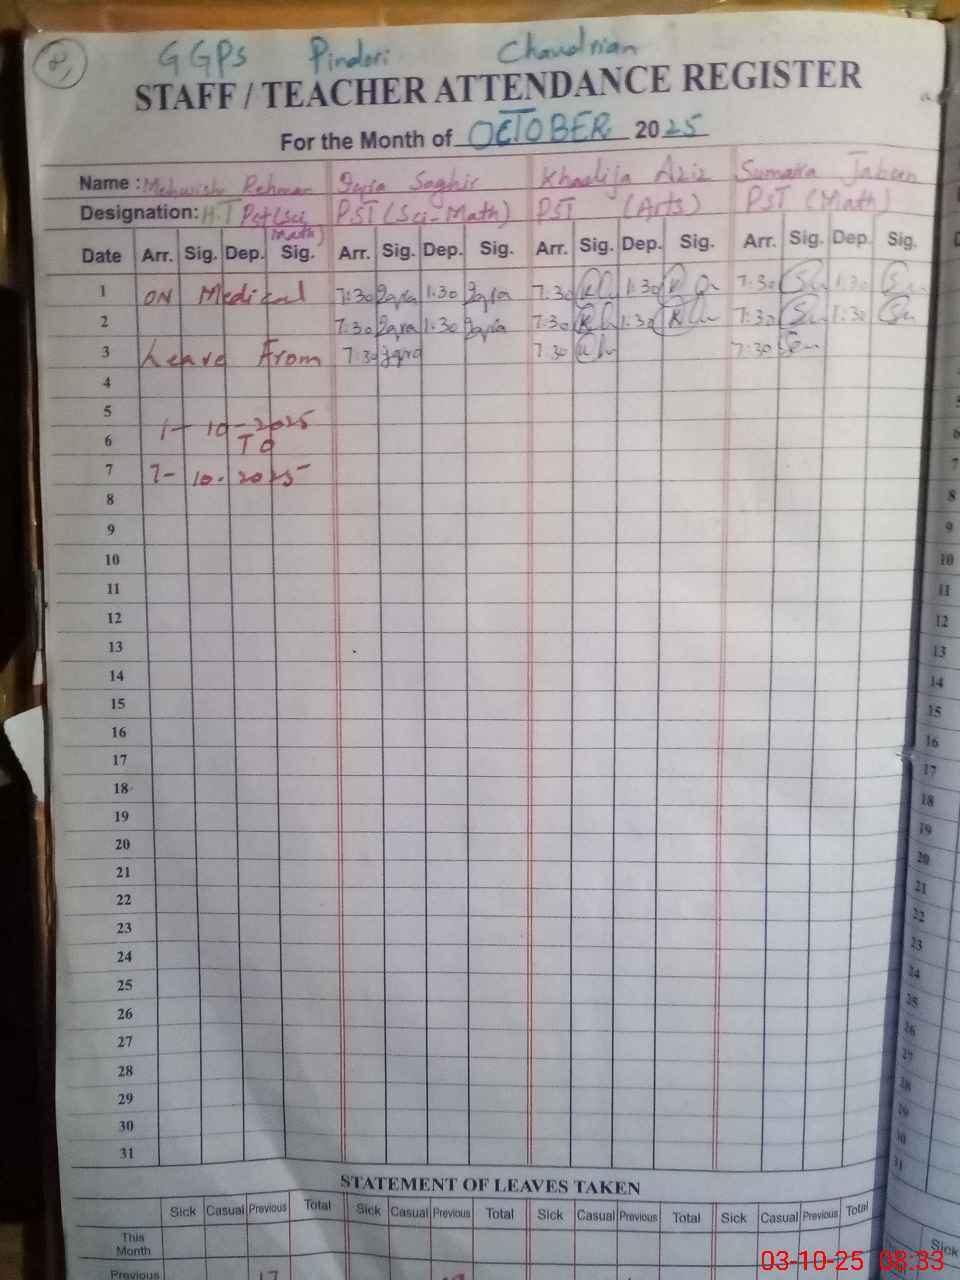 GGPS Pindori Chaudrian
STAFF / TEACHER ATTENDANCE REGISTER
For the Month of OCTOBER 2025
Name : Mehwish Rehman Iqra Saghir Khadija Aziz Sumaira Jabeen
Designation: H.T Pst (Sci Math) PST (Sci-Math) PST (Arts) PST (Math)
Date Arr. Sig. Dep. Sig. Arr. Sig. Dep. Sig. Arr. Sig. Dep. Sig. Arr. Sig. Dep. Sig.
1 ON Medical 7:30 Iqra 1:30 Iqra 7:30 1:30 7:30 1:30
2 7:30 Iqra 1:30 Iqra 7:30 1:30 7:30 1:30
3 Leave From 7:30 Iqra 7:30 7:30
4
5 1-10-2025
6 TO
7 7-10-2025
8
9
10
11
12
13
14
15
16
17
18
19
20
21
22
23
24
25
26
27
28
29
30
31
STATEMENT OF LEAVES TAKEN
Sick Casual Previous Total Sick Casual Previous Total Sick Casual Previous Total Sick Casual Previous Total
This Month
Previous 17
03-10-25 08:33